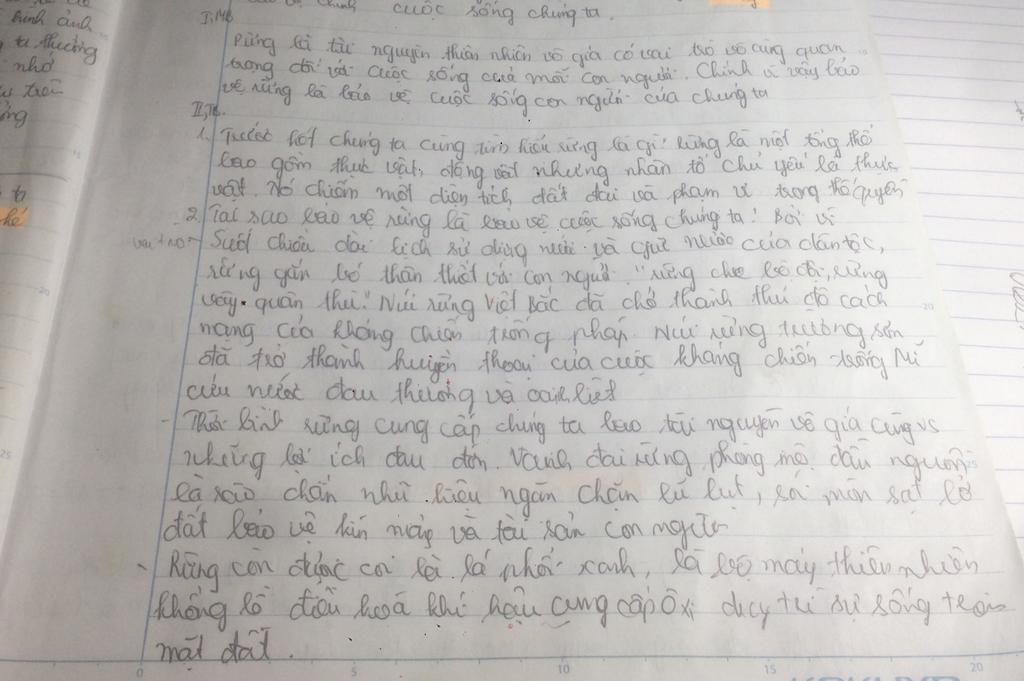 hình ảnh
ta thường
nhớ
cuộc sống chúng ta.
I, MB
Rừng là tài nguyên thiên nhiên vô giá có vai trò vô cùng quan
trọng đối với cuộc sống của mỗi con người. Chính vì vậy bảo
vệ rừng là bảo vệ cuộc sống con người của chúng ta
II, TB.
1. Trước hết chúng ta cùng tìm hiểu rừng là gì? Rừng là một tổng thể
bao gồm thực vật, động vật nhưng nhân tố chủ yếu là thực
vật. Nó chiếm một diện tích đất đai và phạm vi trong khí quyển
2. Tại sao bảo vệ rừng là bảo vệ cuộc sống chúng ta? Bởi vì
vai trò - Suốt chiều dài lịch sử dựng nước và giữ nước của dân tộc,
rừng gắn bó thân thiết với con người "rừng che bộ đội, rừng
vây quân thù". Núi rừng Việt Bắc đã chở thành thủ đô cách
mạng của kháng chiến trống pháp. Núi rừng trường sơn
đã trở thành huyền thoại của cuộc kháng chiến trống Mĩ
cứu nước đau thương và oanh liệt
- Thời bình rừng cung cấp chúng ta bao tài nguyên vô giá cùng vs
những lợi ích đau đơn. Vành đai rừng phòng hộ đầu nguồn
là rào chắn hữu hiệu ngăn chặn lũ lụt, sói mòn sạt lở
đất bảo vệ tính mạng và tài sản con người
- Rừng còn được coi là lá phổi xanh, là bộ máy thiên nhiên
khổng lồ điều hoà khí hậu cung cấp Oxi duy trì sự sống trên
mặt đất.
0 5 10 15 20